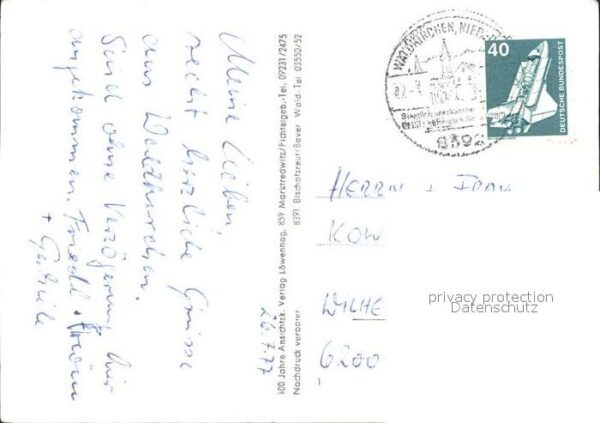 Meine Lieben
recht herzliche Grüsse
aus Waldkirchen.
Sind ohne Verzögerung hier
angekommen. Friedl +
+
26.7.77
100 Jahre Ansichtsk. Verlag Löwenhag, 859 Marktredwitz/Fichtelgeb.-Tel. 09231/2475
8391 Bischofsreut/Bayer Wald-Tel 03550/52
Nachdruck verboten
WALDKIRCHEN, NIEDERB
8392
40
DEUTSCHE BUNDESPOST
HERRN + FRAU
KOW
WILHE
6200
privacy protection
Datenschutz
1